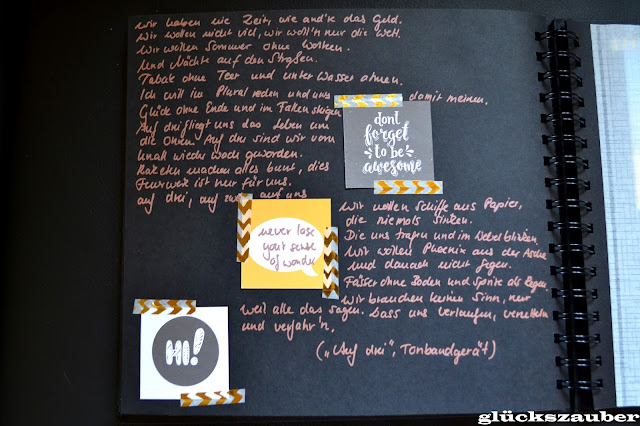 wir haben nie Zeit, wie and're das Geld.
Wir wollen nicht viel, wir woll'n nur die Welt.
Wir wollen Sommer ohne Wolken.
Und Nächte auf den Straßen.
Tabak ohne Teer und unter Wasser atmen.
Ich will im Plural reden und uns damit meinen.
Glück ohne Ende und im Fallen steigen
Auf drei fliegt uns das Leben um
die Ohren. Auf drei sind wir vom
Knall wieder wach geworden.
Raketen machen alles bunt, dies
Feuerwerk ist nur für uns.
auf drei, auf zwei, auf uns
dont
forget
to be
awesome
never lose
your sense
of wonder
Wir wollen Schiffe aus Papier,
die niemals sinken.
Die uns tragen und im Nebel blinken.
Wir wollen Phoenix aus der Asche
und danach nicht fegen.
Fässer ohne Boden und Spinte als Regen
Wir brauchen keinen Sinn, nur
weil alle das sagen. Lass uns verlaufen,
und verfahr'n.
("Auf drei", Tonbandgerät)
HI!
glückszauber